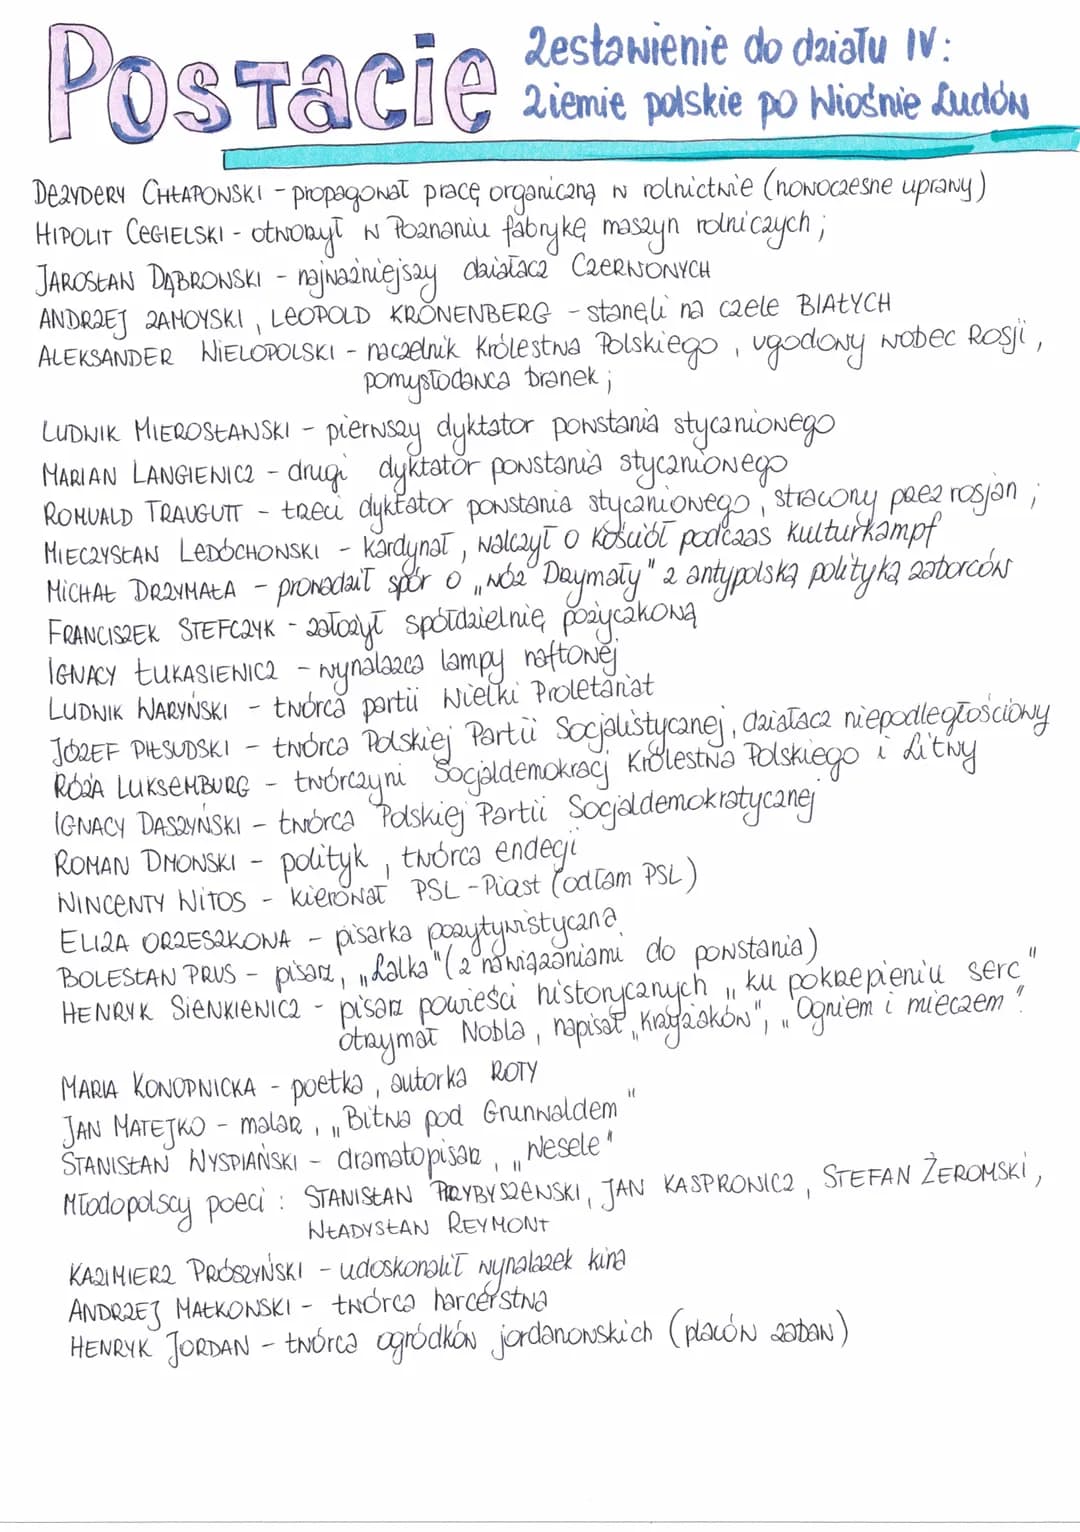 Postacie
Zestawienie do działu IV:
Ziemie polskie po Wiośnie Ludów
DEZYDERY CHŁAPOWSKI - propagował pracę organiczną w rolnictwie (nowoczesne uprawy)
HIPOLIT CEGIELSKI - otworzył w Poznaniu fabrykę maszyn rolniczych;
JAROSŁAW DĄBROWSKI - najważniejszy działacz CZERWONYCH
ANDRZEJ ZAMOYSKI, LEOPOLD KRONENBERG - stanęli na czele BIAŁYCH
ALEKSANDER WIELOPOLSKI - naczelnik Królestwa Polskiego, ugodowy wobec Rosji,
pomysłodawca branek;
LUDWIK MIEROSŁAWSKI - pierwszy dyktator powstania styczniowego
MARIAN LANGIEWICZ - drugi dyktator powstania styczniowego
ROMUALD TRAUGUTT - trzeci dyktator powstania styczniowego, stracony przez rosjan;
MIECZYSŁAW LEDÓCHOWSKI - kardynał, walczył o kościół podczas kulturkampf
MICHAŁ DRZYMAŁA - prowadził spór o „wóz Drzymały" z antypolską polityką zaborców
FRANCISZEK STEFCZYK - założył spółdzielnię pożyczkową
IGNACY ŁUKASIEWICZ - wynalazca lampy naftowej
LUDWIK WARYŃSKI - twórca partii Wielki Proletariat
JÓZEF PIŁSUDSKI - twórca Polskiej Partii Socjalistycznej, działacz niepodległościowy
RÓŻA LUKSEMBURG - twórczyni Socjaldemokracj Królestwa Polskiego i Litwy
IGNACY DASZYŃSKI - twórca Polskiej Partii Socjaldemokratycznej
ROMAN DMOWSKI - polityk, twórca endecji
WINCENTY WITOS - kierował PSL-Piast (odłam PSL)
ELIZA ORZESZKOWA - pisarka pozytywistyczna
BOLESŁAW PRUS - pisarz, „Lalka" (z nawiązaniami do powstania)
HENRYK SIENKIEWICZ - pisarz powieści historycznych „ku pokrzepieniu serc"
otrzymał Nobla, napisał „Krzyżaków", „Ogniem i mieczem"
MARIA KONOPNICKA - poetka, autorka ROTY
JAN MATEJKO - malarz, „Bitwa pod Grunwaldem"
STANISŁAW WYSPIAŃSKI - dramatopisarz, „Wesele"
Młodopolscy poeci: STANISŁAW PRZYBYSZEWSKI, JAN KASPROWICZ, STEFAN ŻEROMSKI,
WŁADYSŁAW REYMONT
KAZIMIERZ PRÓSZYŃSKI - udoskonalił wynalazek kina
ANDRZEJ MAŁKOWSKI - twórca harcerstwa
HENRYK JORDAN - twórca ogródków jordanowskich (placów zabaw)